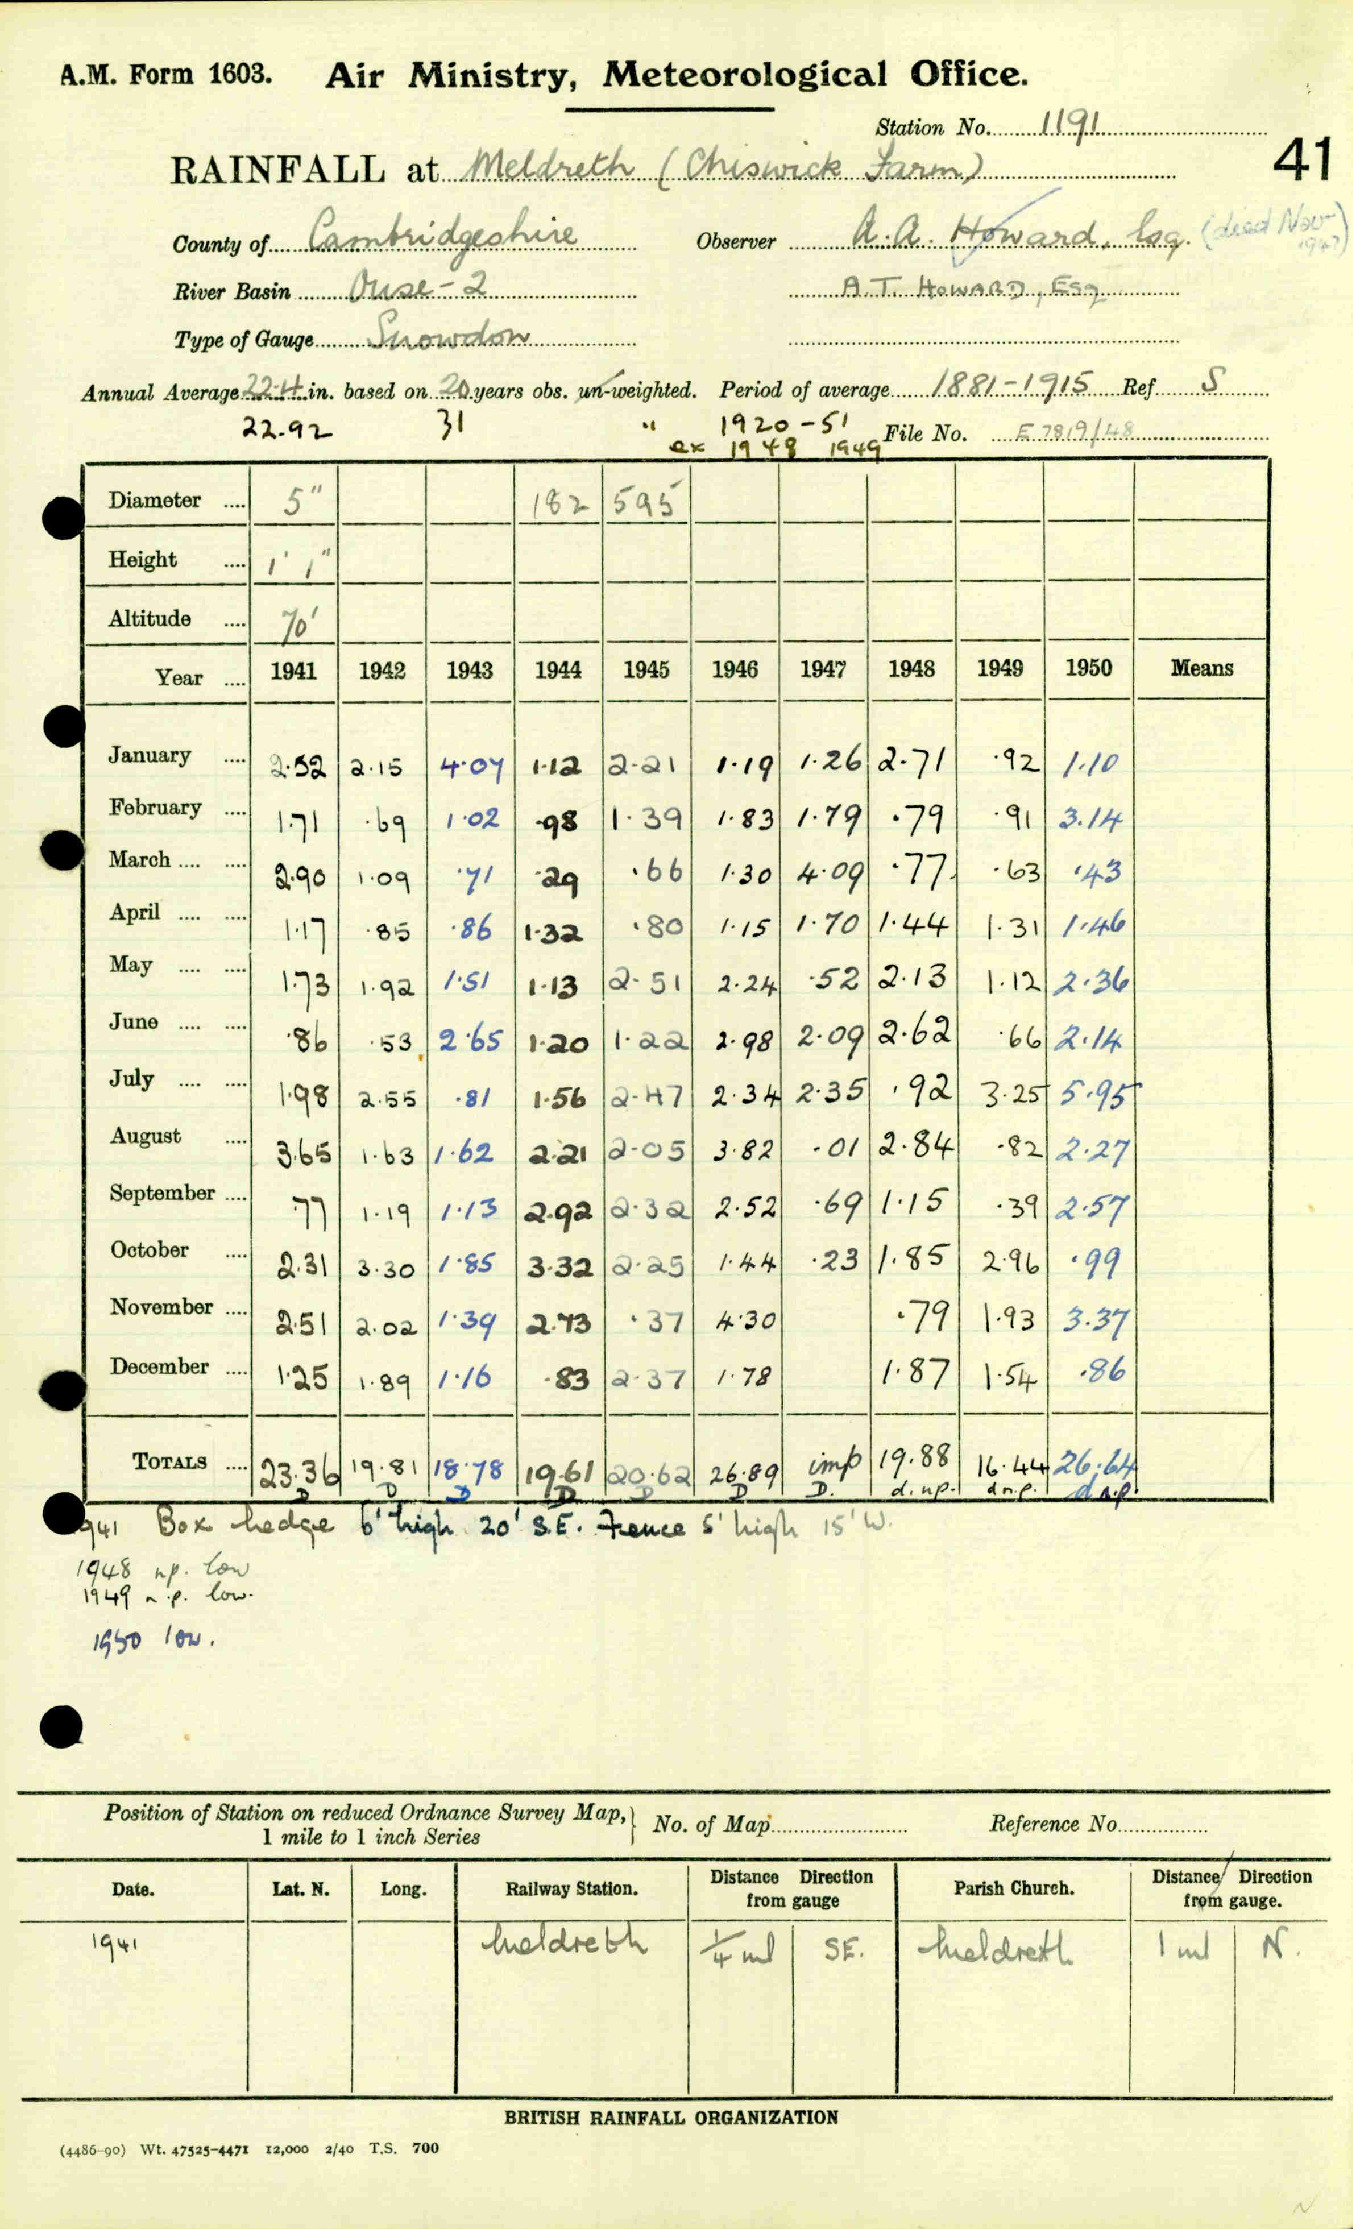 A.M. Form 1603. Air Ministry, Meteorological Office.
Station No. 1191
41
RAINFALL at Meldreth (Chiswick Farm)
County of Cambridgeshire Observer A.A. Howard, Esq. (died Nov 1947)
River Basin Ouse-2 A.T. HOWARD, ESQ
Type of Gauge Snowdon
Annual Average 22.4 in. based on 20 years obs. un-weighted. Period of average 1881-1915 Ref S
22.92 31 " 1920-51 File No. E 7819/48
ex 1948 1949
Diameter .... 5" 182 595
Height .... 1' 1"
Altitude .... 70'
Year .... 1941 1942 1943 1944 1945 1946 1947 1948 1949 1950 Means
January .... 2.52 2.15 4.07 1.12 2.21 1.19 1.26 2.71 .92 1.10
February .... 1.71 .69 1.02 .98 1.39 1.83 1.79 .79 .91 3.14
March .... .... 2.90 1.09 .71 .29 .66 1.30 4.09 .77 .63 .43
April .... .... 1.17 .85 .86 1.32 .80 1.15 1.70 1.44 1.31 1.46
May .... .... 1.73 1.92 1.51 1.13 2.51 2.24 .52 2.13 1.12 2.36
June .... .... .86 .53 2.65 1.20 1.22 2.98 2.09 2.62 .66 2.14
July .... .... 1.98 2.55 .81 1.56 2.47 2.34 2.35 .92 3.25 5.95
August .... 3.65 1.63 1.62 2.21 2.05 3.82 .01 2.84 .82 2.27
September .... .77 1.19 1.13 2.92 2.32 2.52 .69 1.15 .39 2.57
October .... 2.31 3.30 1.85 3.32 2.25 1.44 .23 1.85 2.96 .99
November .... 2.51 2.02 1.39 2.73 .37 4.30 .79 1.93 3.37
December .... 1.25 1.89 1.16 .83 2.37 1.78 1.87 1.54 .86
TOTALS .... 23.36 19.81 18.78 19.61 20.62 26.89 imp 19.88 16.44 26.64
D D D D D D D. d.n.p. d.n.p. d.n.p.
1941 Box hedge 6' high 20' S.E. Fence 5' high 15' W.
1948 n.p. low
1949 n.p. low.
1950 low.
Position of Station on reduced Ordnance Survey Map, 1 mile to 1 inch Series No. of Map Reference No.
Date. Lat. N. Long. Railway Station. Distance Direction from gauge Parish Church. Distance Direction from gauge.
1941 Meldreth 1/4 ml SE. Meldreth 1 ml N.
BRITISH RAINFALL ORGANIZATION
(4486-90) Wt. 47525-4471 12,000 2/40 T.S. 700